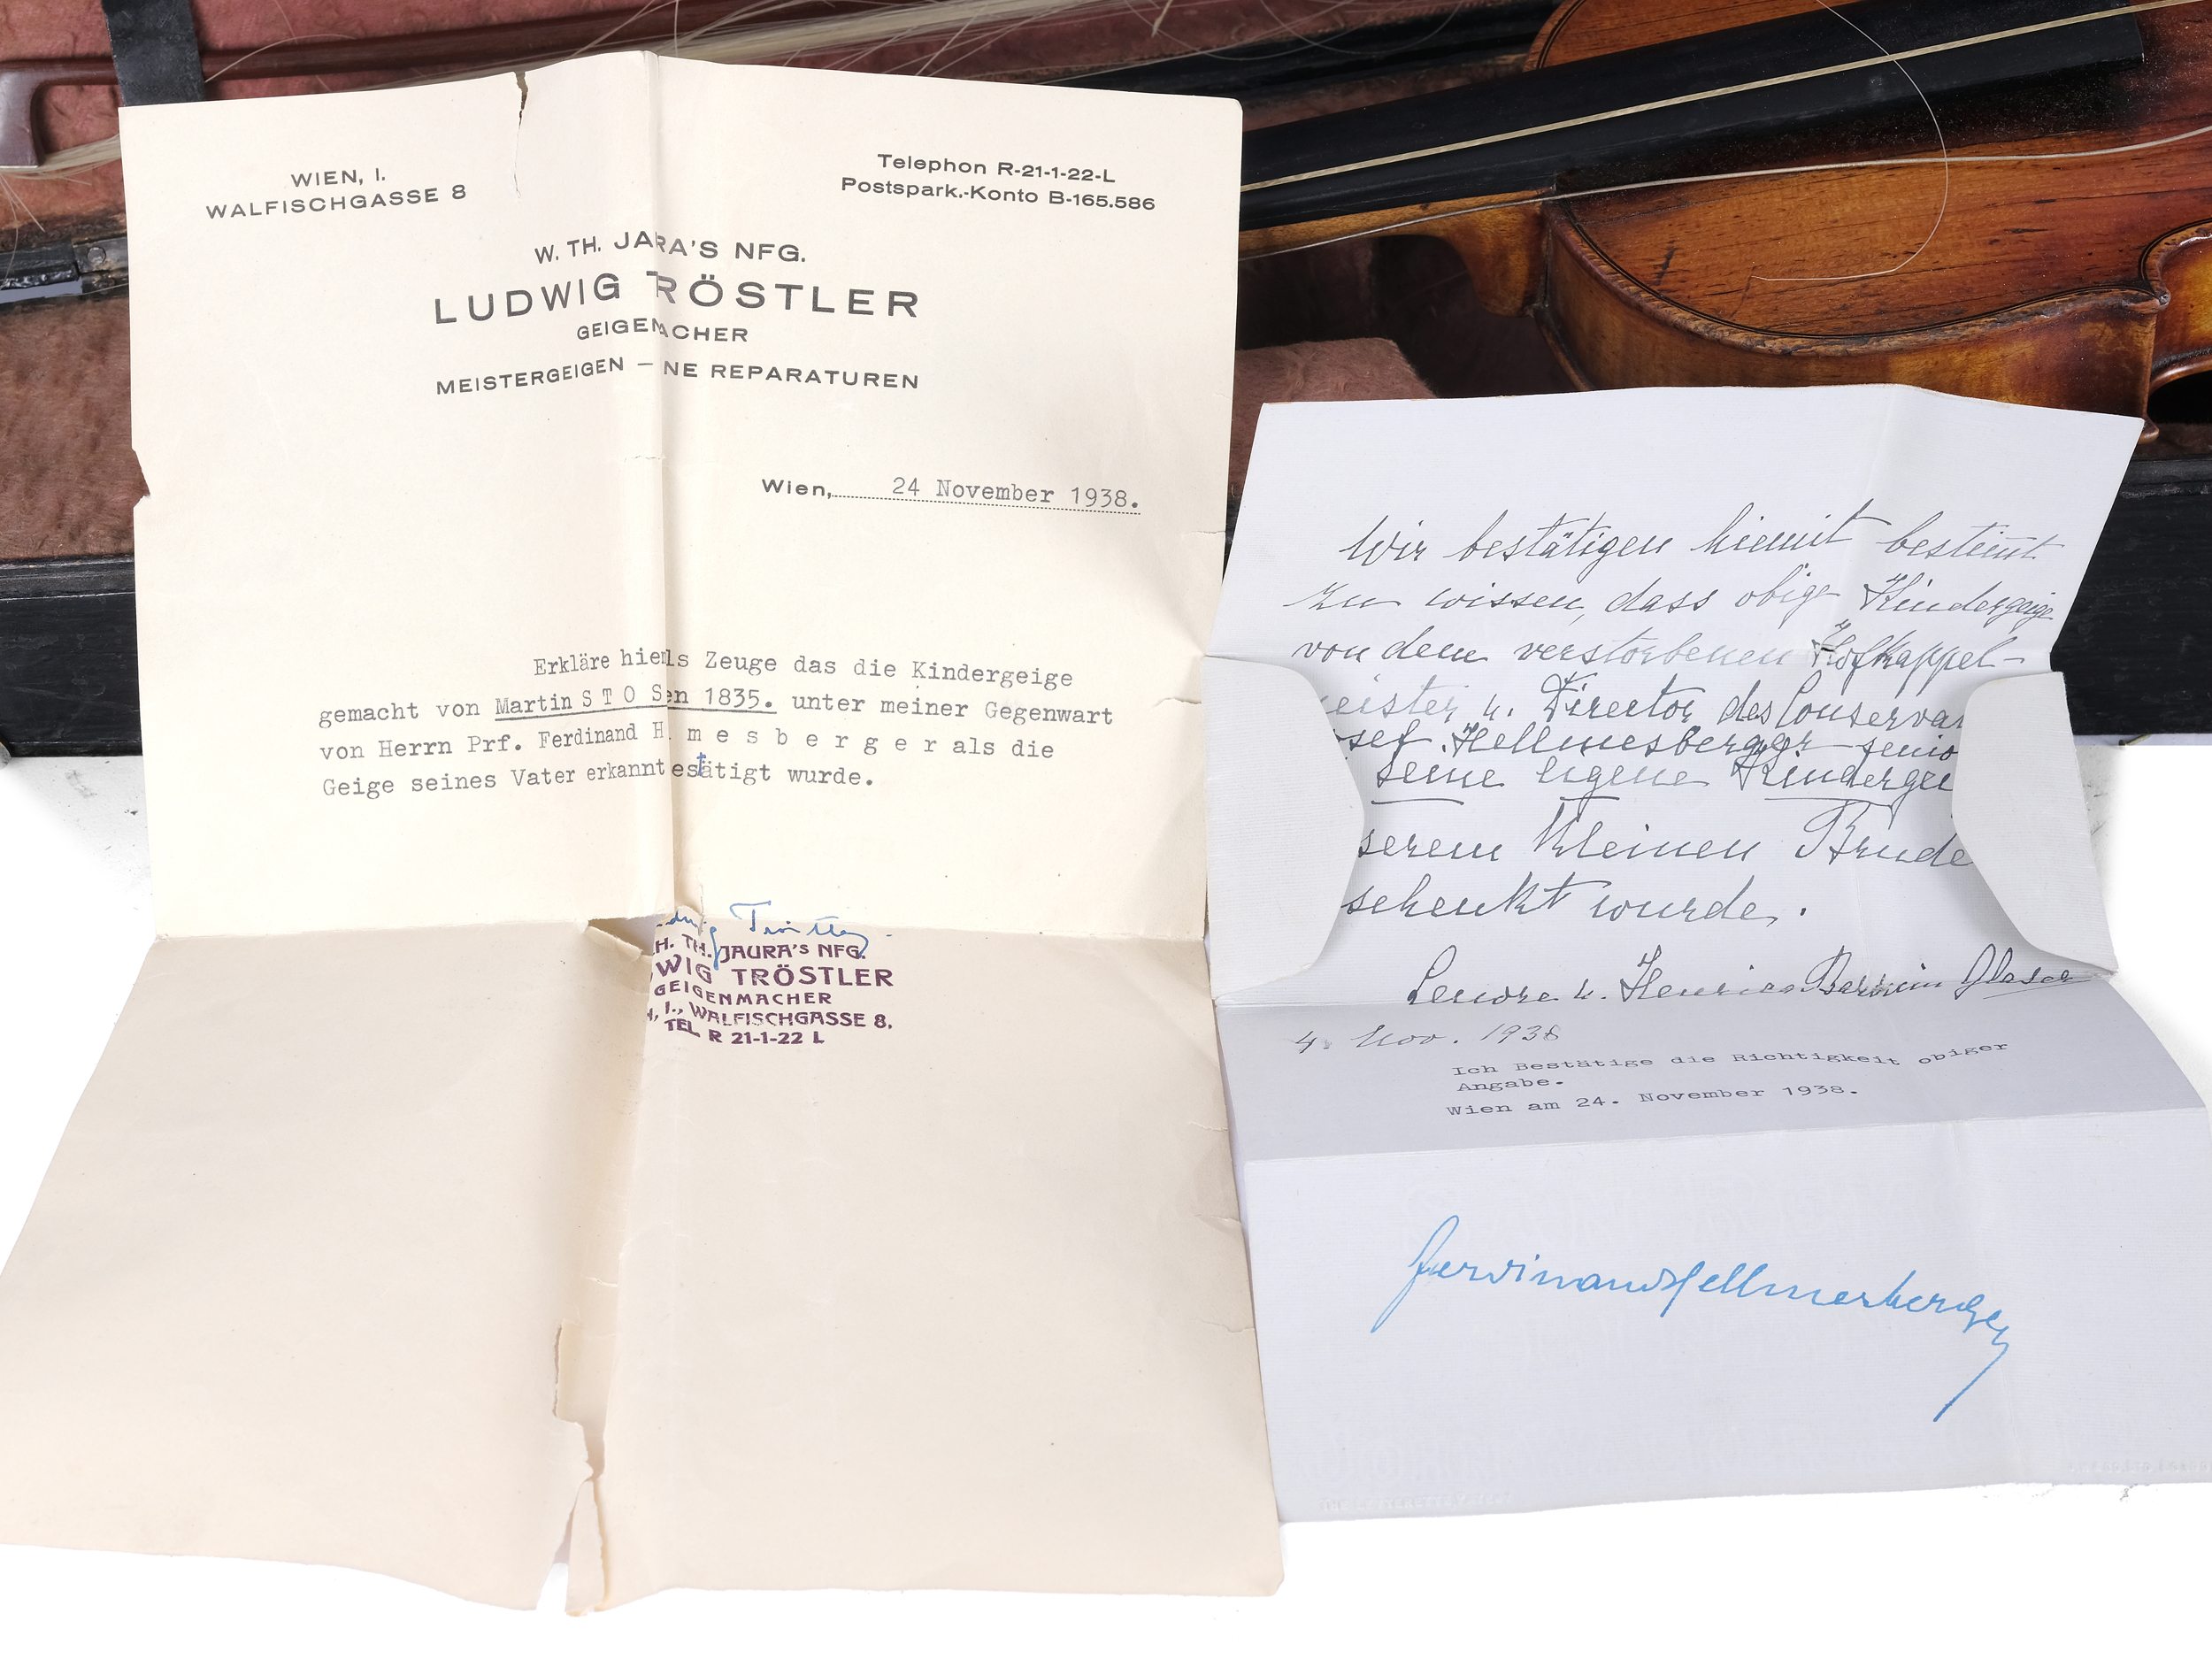 WIEN, I.
WALFISCHGASSE 8
Telephon R-21-1-22-L
Postspark.-Konto B-165.586
W. TH. JARA'S NFG.
LUDWIG TRÖSTLER
GEIGENACHER
MEISTERGEIGEN — NE REPARATUREN
Wien, 24 November 1938.
Erkläre hiemls Zeuge das die Kindergeige
gemacht von Martin S T O Sen 1835. unter meiner Gegenwart
von Herrn Prf. Ferdinand H m e s b e r g e r als die
Geige seines Vater erkannt estätigt wurde.
Tröstler
H. TH. JAURA'S NFG.
WIG TRÖSTLER
GEIGENMACHER
N, I., WALFISCHGASSE 8.
TEL. R 21-1-22 L
Wir bestätigen hiemit bestimt
zu wissen, dass obige Kindergeige
von dem verstorbenen Hofkappel-
eister u. Director des Conservat
osef Hellmesberger senio
seine eigene Kinderge
serem kleinen Brude
schenkt wurde.
u. Glaser
4. Nov. 1938
Ich Bestätige die Richtigkeit obiger
Angabe.
Wien am 24. November 1938.
Ferdinand Hellmesberger